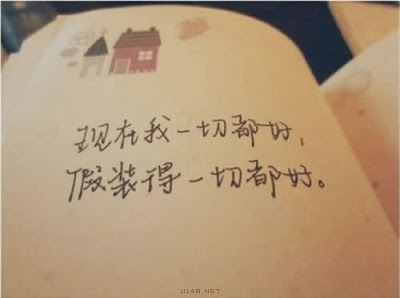 现在我一切都好，
假装得一切都好。
U148.NET